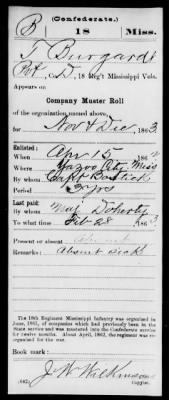 (Confederate.)
B 18 Miss.
T Burgardt
Pvt, Co. D, 18 Reg't Mississippi Vols.
Appears on
Company Muster Roll
of the organization named above,
for Nov & Dec, 1863.
Enlisted:
When Apr 15, 186
Where Yazoo City Miss
By whom Capt Bostick
Period 3 yrs
Last paid:
By whom Maj Doherty
To what time Feb 28, 1863.
Present or absent Absent
Remarks: Absent sick
The 18th Regiment Mississippi Infantry was organized in
June, 1861, of companies which had previously been in the
State service and was mustered into the Confederate service
for twelve months. About April, 1862, the regiment was re-
organized for the war.
Book mark:
J W Wilkinson
(642) Copyist.